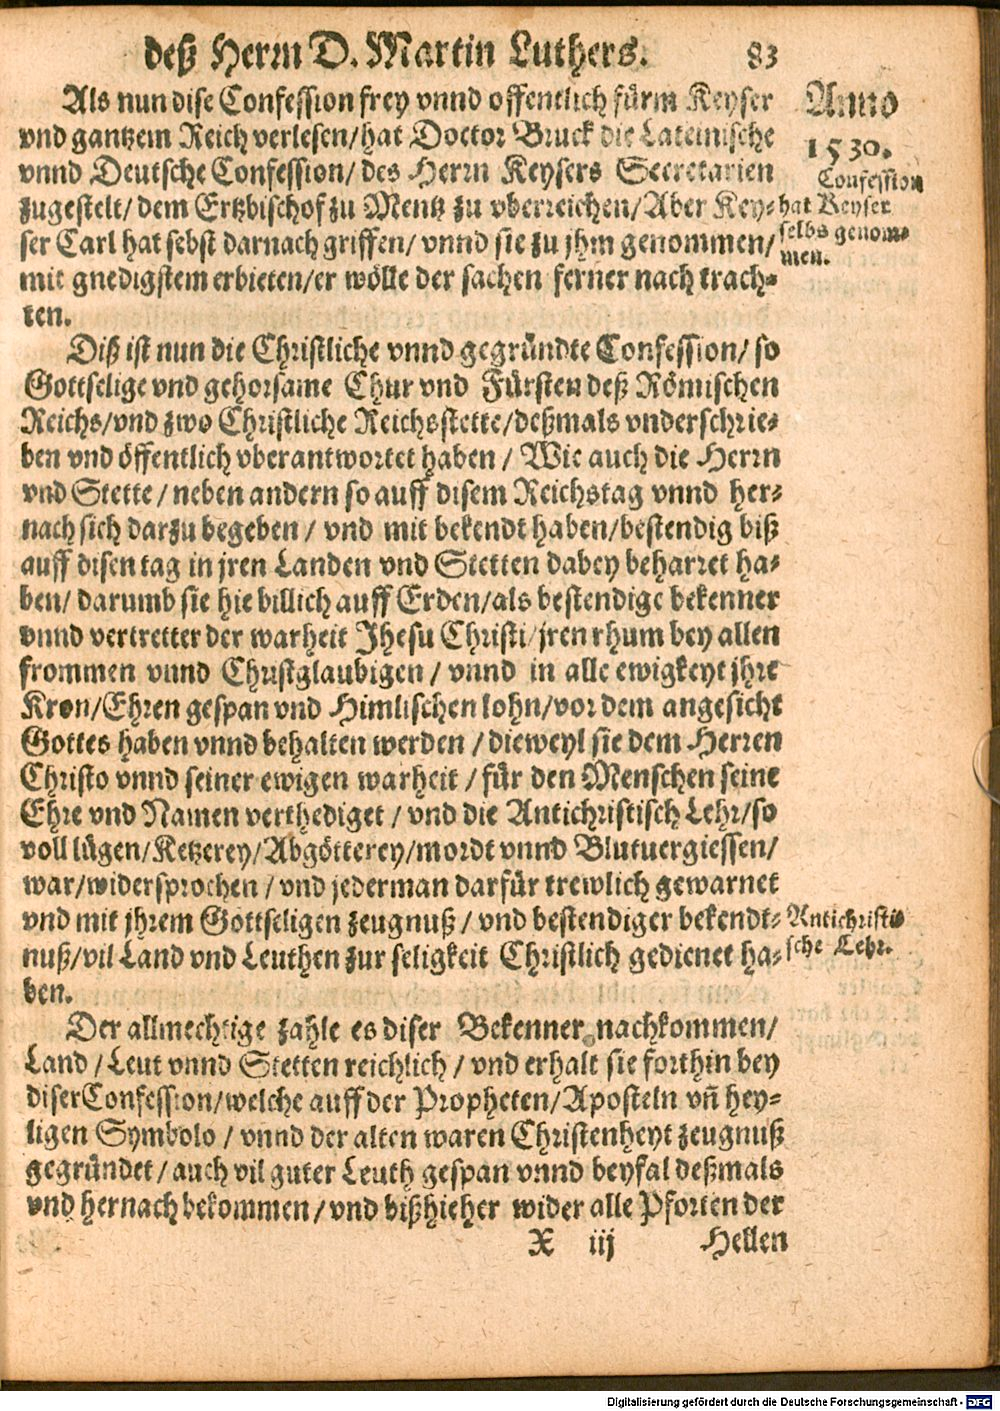 deß Herrn D. Martin Luthers. 83
Als nun dise Confession frey vnnd offentlich fürm Keyser
vnd gantzem Reich verlesen/hat Doctor Bruck die Lateinische
vnnd Deutsche Confession/ des Herrn Keysers Secretarien
zugestelt/ dem Ertzbischof zu Mentz zu vberreichen/ Aber Key-
ser Carl hat sebst darnach griffen/ vnnd sie zu jhm genommen/
mit gnedigstem erbieten/er wölle der sachen ferner nach trach-
ten.
Anno
1530.
Confession
hat Keyser
selbs genom-
men.
Diß ist nun die Christliche vnnd gegründte Confession/ so
Gottselige vnd gehorsame Chur vnd Fürsten deß Römischen
Reichs/vnd zwo Christliche Reichsstette/deßmals vnderschrie-
ben vnd öffentlich vberantwortet haben / Wie auch die Herrn
vnd Stette / neben andern so auff disem Reichstag vnnd her-
nach sich darzu begeben / vnd mit bekendt haben/bestendig biß
auff disen tag in jren Landen vnd Stetten dabey beharret ha-
ben/ darumb sie hie billich auff Erden/als bestendige bekenner
vnnd vertretter der warheit Jhesu Christi/jren rhum bey allen
frommen vnnd Christglaubigen / vnnd in alle ewigkeyt jhre
Kron/Ehren gespan vnd Himlischen lohn/vor dem angesicht
Gottes haben vnnd behalten werden / dieweyl sie dem Herren
Christo vnnd seiner ewigen warheit / für den Menschen seine
Ehre vnd Namen verthediget / vnd die Antichristisch Lehr/so
voll lügen/Ketzerey/Abgötterey/mordt vnnd Blutuergiessen/
war/widersprochen / vnd jederman darfür trewlich gewarnet
vnd mit jhrem Gottseligen zeugnuß / vnd bestendiger bekendt-
nuß/vil Land vnd Leuthen zur seligkeit Christlich gedienet ha-
ben.
Antichristi-
sche Lehr.
Der allmechtige zahle es diser Bekenner nachkommen/
Land / Leut vnnd Stetten reichlich / vnd erhalt sie forthin bey
diser Confession/welche auff der Propheten/Aposteln vñ hey-
ligen Symbolo / vnnd der alten waren Christenheyt zeugnuß
gegründet/ auch vil guter Leuth gespan vnnd beyfal deßmals
vnd hernach bekommen / vnd bißhieher wider alle Pforten der
X iij Hellen
Digitalisierung gefördert durch die Deutsche Forschungsgemeinschaft - DFG